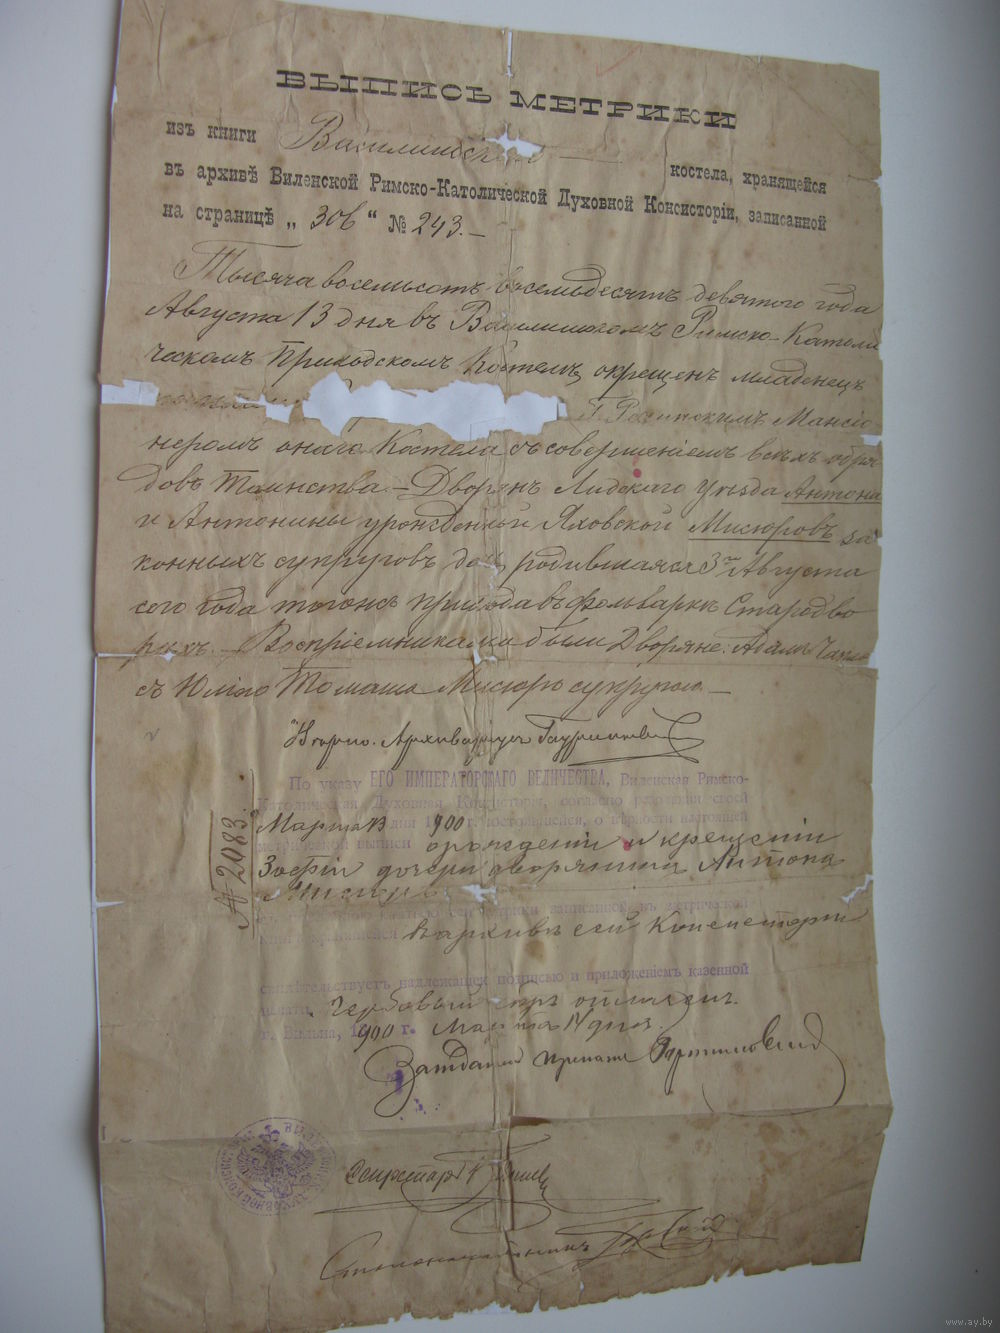 ВЫПИСЬ МЕТРИКИ
изъ книги Василишскаго костела, хранящейся
въ архивѣ Виленской Римско-Католической Духовной Консисторіи, записанной
на страницѣ „ 306 “ № 243.
Тысяча восемьсотъ восемьдесятъ девятого года
Августа 13 дня въ Василишскомъ Римско-Католи
ческомъ Приходскомъ Костелѣ, окрещенъ младенецъ
Мансіо-
неромъ онаго Костела съ совершеніемъ всѣхъ обря-
довъ Таинства. – Дворянъ Лидскаго Уѣзда Антона
и Антонины урожденной Яховской Мисюровъ за
конныхъ супруговъ дочь, родившаяся 3го Августа
сего года тогожъ прихода въ фольваркѣ Стародво
рцхъ. – Воспріемниками были Дворяне: Адамъ
съ Юліею Томаша Мисюръ супругою. –
Архиваріусъ
По указу ЕГО ИМПЕРАТОРСКАГО ВЕЛИЧЕСТВА, Виленская Римско-
Католическая Духовная Консисторія, согласно резолюціи своей
Марта 13 дня 1900 г. состоявшейся, о вѣрности настоящей
метрической выписи о рожденіи и крещеніи
Зофіи дочери дворянина Антона
метрики записанной въ метрической
книгѣ хранящейся въ архивѣ сей Консисторіи
свидѣтельствуетъ надлежащею подписью и приложеніемъ казенной
печати. Гербовый сборъ оплаченъ.
г. Вильна, 1900 г. Марта 14 дня.
№ 2983.
Засѣдатель Прелатъ
Секретарь
Столоначальникъ
www.ay.by